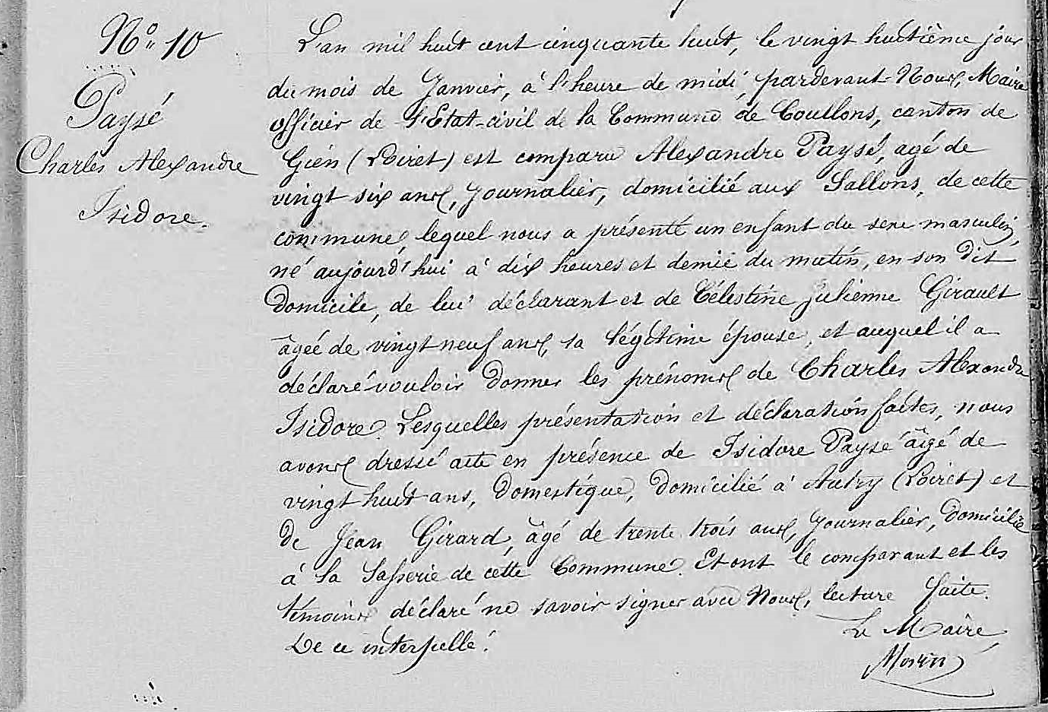 N° 10
Paysé
Charles Alexandre
Isidore.
L'an mil huit cent cinquante huit, le vingt huitième jour
du mois de Janvier, à l'heure de midi, pardevant Nous, Maire
officier de l'État-civil de la Commune de Coullons, canton de
Gien (Loiret) est comparu Alexandre Paysé, agé de
vingt six ans, Journalier, domicilié aux Sallons, de cette
commune, lequel nous a présenté un enfant du sexe masculin,
né aujourd'hui à dix heures et demie du matin, en son dit
domicile, de lui déclarant et de Célestine Julienne Girault
âgée de vingt neuf ans, sa légitime épouse, et auquel il a
déclaré vouloir donner les prénoms de Charles Alexandre
Isidore. Lesquelles présentation et déclaration faites, nous
avons dressé acte en présence de Isidore Paysé âgé de
vingt huit ans, domestique, domicilié à Autry (Loiret) et
de Jean Girard, âgé de trente trois ans, Journalier, domicilié
à la de cette Commune. Et ont le comparant et les
témoins déclaré ne savoir signer avec Nous, lecture faite.
De ce interpellé.
Le Maire,
Morin